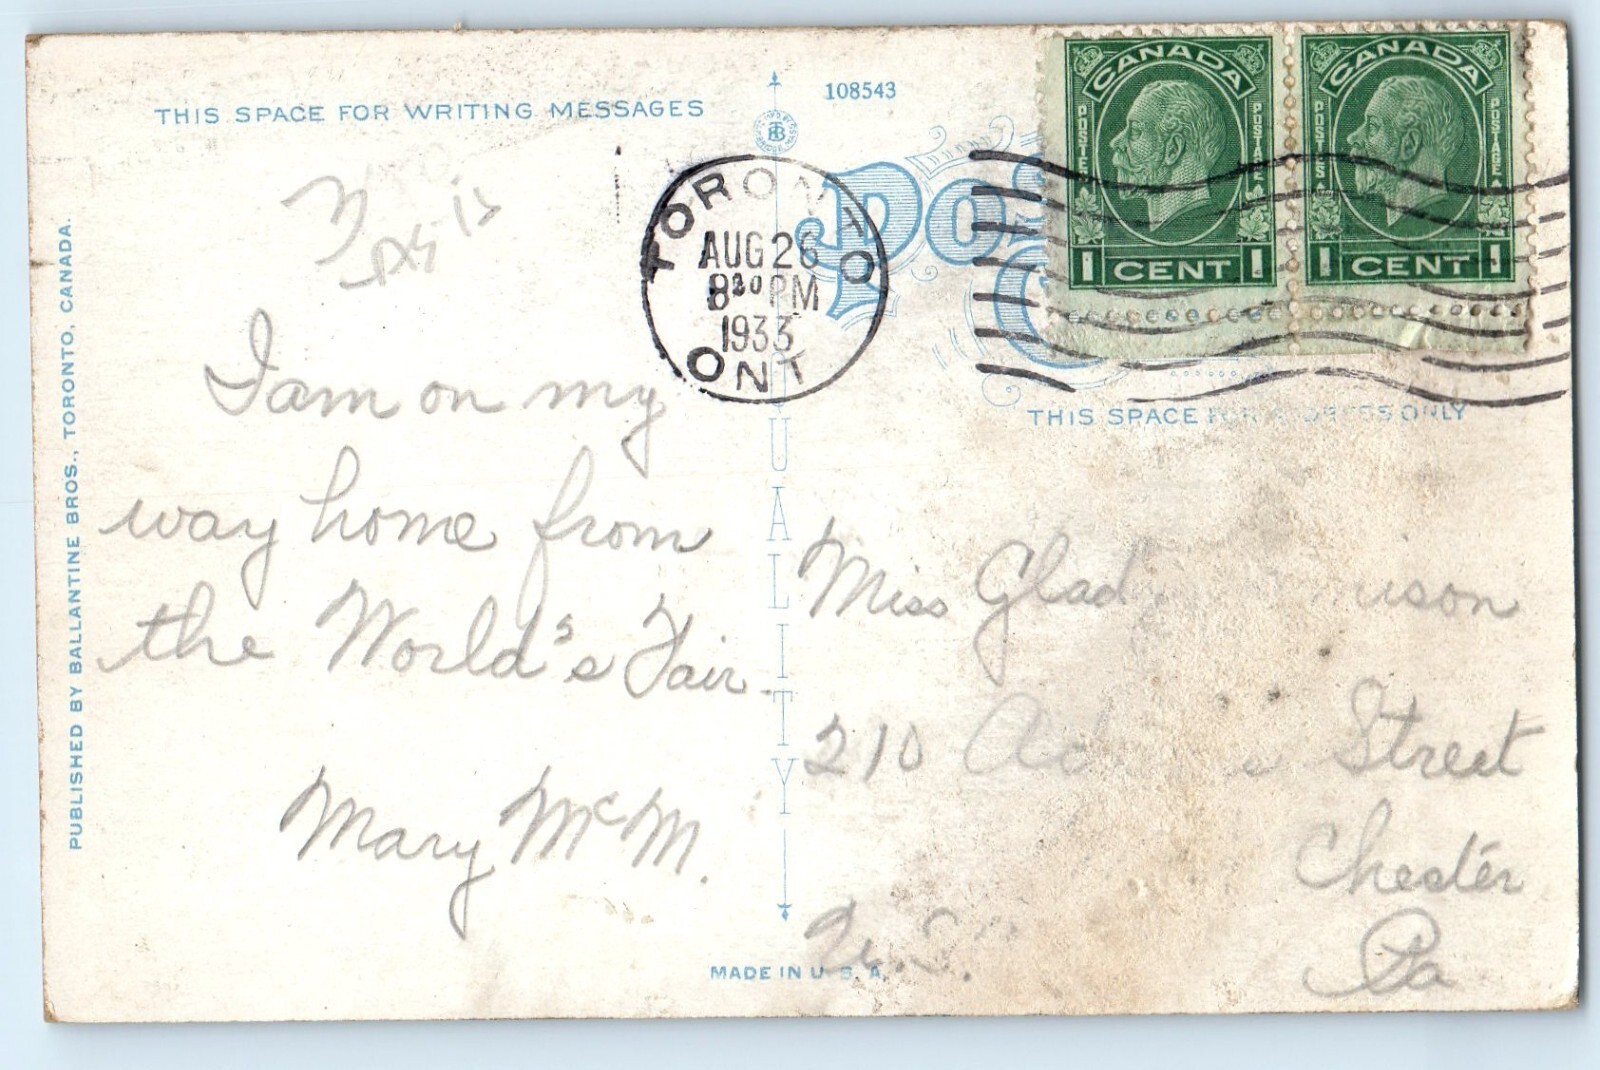 THIS SPACE FOR WRITING MESSAGES
108543
CANADA
POSTES
POSTAGE
1 CENT 1
CANADA
POSTES
POSTAGE
1 CENT 1
TORONTO
AUG 26
8 30 PM
1933
ONT
THIS SPACE FOR ADDRESS ONLY
I am on my
way home from
the World's Fair.
Mary McM.
Miss Glad
210 Street
Chester
Pa
U.S.
QUALITY
PUBLISHED BY BALLANTINE BROS., TORONTO, CANADA.
MADE IN U.S.A.